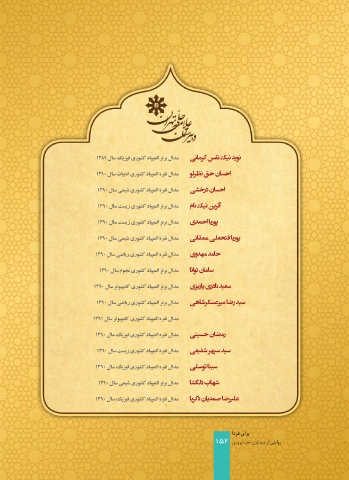 دبیرستان علامه حلی تهران
نوید نیک نفس کرمانی مدال برنز المپیاد کشوری فیزیک سال ۱۳۸۹
احسان حق نظرلو مدال نقره المپیاد کشوری ادبیات سال ۱۳۹۰
احسان درخشی مدال نقره المپیاد کشوری شیمی سال ۱۳۹۰
آذین نیک نام مدال برنز المپیاد کشوری زیست سال ۱۳۹۰
پوریا احمدی مدال نقره المپیاد کشوری زیست سال ۱۳۹۰
پویا فتحعلی ممقانی مدال نقره المپیاد کشوری شیمی سال ۱۳۹۰
حامد مهدوی مدال برنز المپیاد کشوری ریاضی سال ۱۳۹۰
سامان توانا مدال نقره المپیاد کشوری نجوم سال ۱۳۹۰
سعید نادری پاریزی مدال نقره المپیاد کشوری کامپیوتر سال ۱۳۹۰
سید رضا میرعسکرشاهی مدال برنز المپیاد کشوری ریاضی سال ۱۳۹۰
مدال نقره المپیاد کشوری کامپیوتر سال ۱۳۹۱
رمضان حسینی مدال نقره المپیاد کشوری فیزیک سال ۱۳۹۰
سید سپهر شفیعی مدال نقره المپیاد کشوری زیست سال ۱۳۹۰
سینا توسلی مدال نقره المپیاد کشوری فیزیک سال ۱۳۹۰
شهاب دلگشا مدال برنز المپیاد کشوری شیمی سال ۱۳۹۰
علیرضا صمدیان زکریا مدال نقره المپیاد کشوری فیزیک سال ۱۳۹۰
برای فردا
۱۵۲